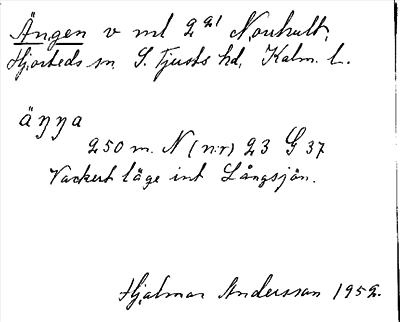 Ängen v ml 2 221 Norrhult,
Hjorteds sn. S. Tjusts hd, Kalm. L.
äŋŋa
250 m. N (nr) 23 G 37
Vackert läge int Långsjön.
Hjalmar Andersson 1952.